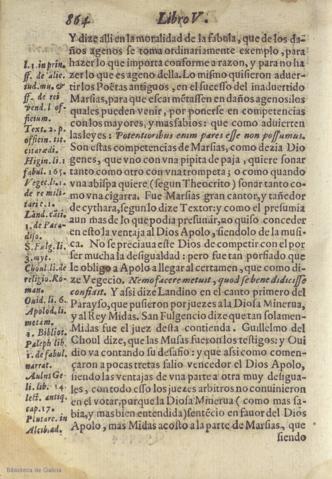 864
Libro V.
Y dize alli en la moralidad de la fabula, que de los da-
ños agenos se toma ordinariamente exemplo, para
hazer lo que importa conforme a razon, y para no ha
zer lo que es ageno della. Lo mismo quisieron aduer-
tirlos Poëtas antiguos, en el sucesso del inaduertido
Marsias, para que escarmẽtassen en daños agenos: los
quales pueden venir, por ponerse en competencias
con los mayores, y mas sabios: que como aduierten
las leyes: Potentioribus enim pares esse non possumus.
Son estas competencias de Marsias, como dezia Dio
genes, que vno con vna pipita de paja, quiere sonar
tanto como otro con vna trompeta; o como quando
vna abispa quiere (segun Theocrito) sonar tanto co-
mo vna cigarra. Fue Marsias gran cantor, y tañedor
de cythara, segun lo dize Textor: y como el presumia
aun mas de lo que podia presumir, no quiso conceder
en esto la ventaja al Dios Apolo, siendolo de la musi-
ca. No se preciaua este Dios de competir con el por
ser mucha la desigualdad: pero fue tan porfiado que
le obligo a Apolo a llegar al certamen, que como di-
ze Vegecio. Nemo facere metuit, quod se bene didicisse
confidit. Y assi dize Landino en el canto primero del
Parayso, que pusieron por juezes a la Diosa Minerua,
y al Rey Midas. San Fulgencio dize que tan solamen-
te Midas fue el juez desta contienda. Guillelmo del
Choul dize, que las Musas fueron los testigos: y Oui
dio va contando su desafio: y que assi como comen-
çaron a pocas tretas salio vencedor el Dios Apolo,
siendo las ventajas de vna parte a otra muy desigua-
les, con todo esso los juezes arbitros no conuinieron
en el votar, porque la Diosa Minerua (como mas sa-
bia, y mas bien entendida) sentẽcio en fauor del Dios
Apolo, mas Midas acosto a la parte de Marsias, que
siendo
l. 1. in prin.
ff. de alie.
iud. mu. &
ff. de rei
vend. l. of-
ficium.
Text. 2. p.
officin. tit.
citaredi.
Higin. li. 1.
fabul. 165.
Veget. li. 1.
de re mili-
tari c. 1.
Lãd. cãti.
1. de Para-
diso.
S. Fulg. li.
3. myt.
Choul. li. de
religio. Ro-
man.
Ouid. li. 6.
Apolod. li.
metam.
2. Bibliot.
Paleph lib.
1. de fabul.
narrat.
Aulus Ge-
li. lib. 14.
lect. antiq.
cap. 17.
Plutarc. in
Alcibiad.
Biblioteca de Galicia